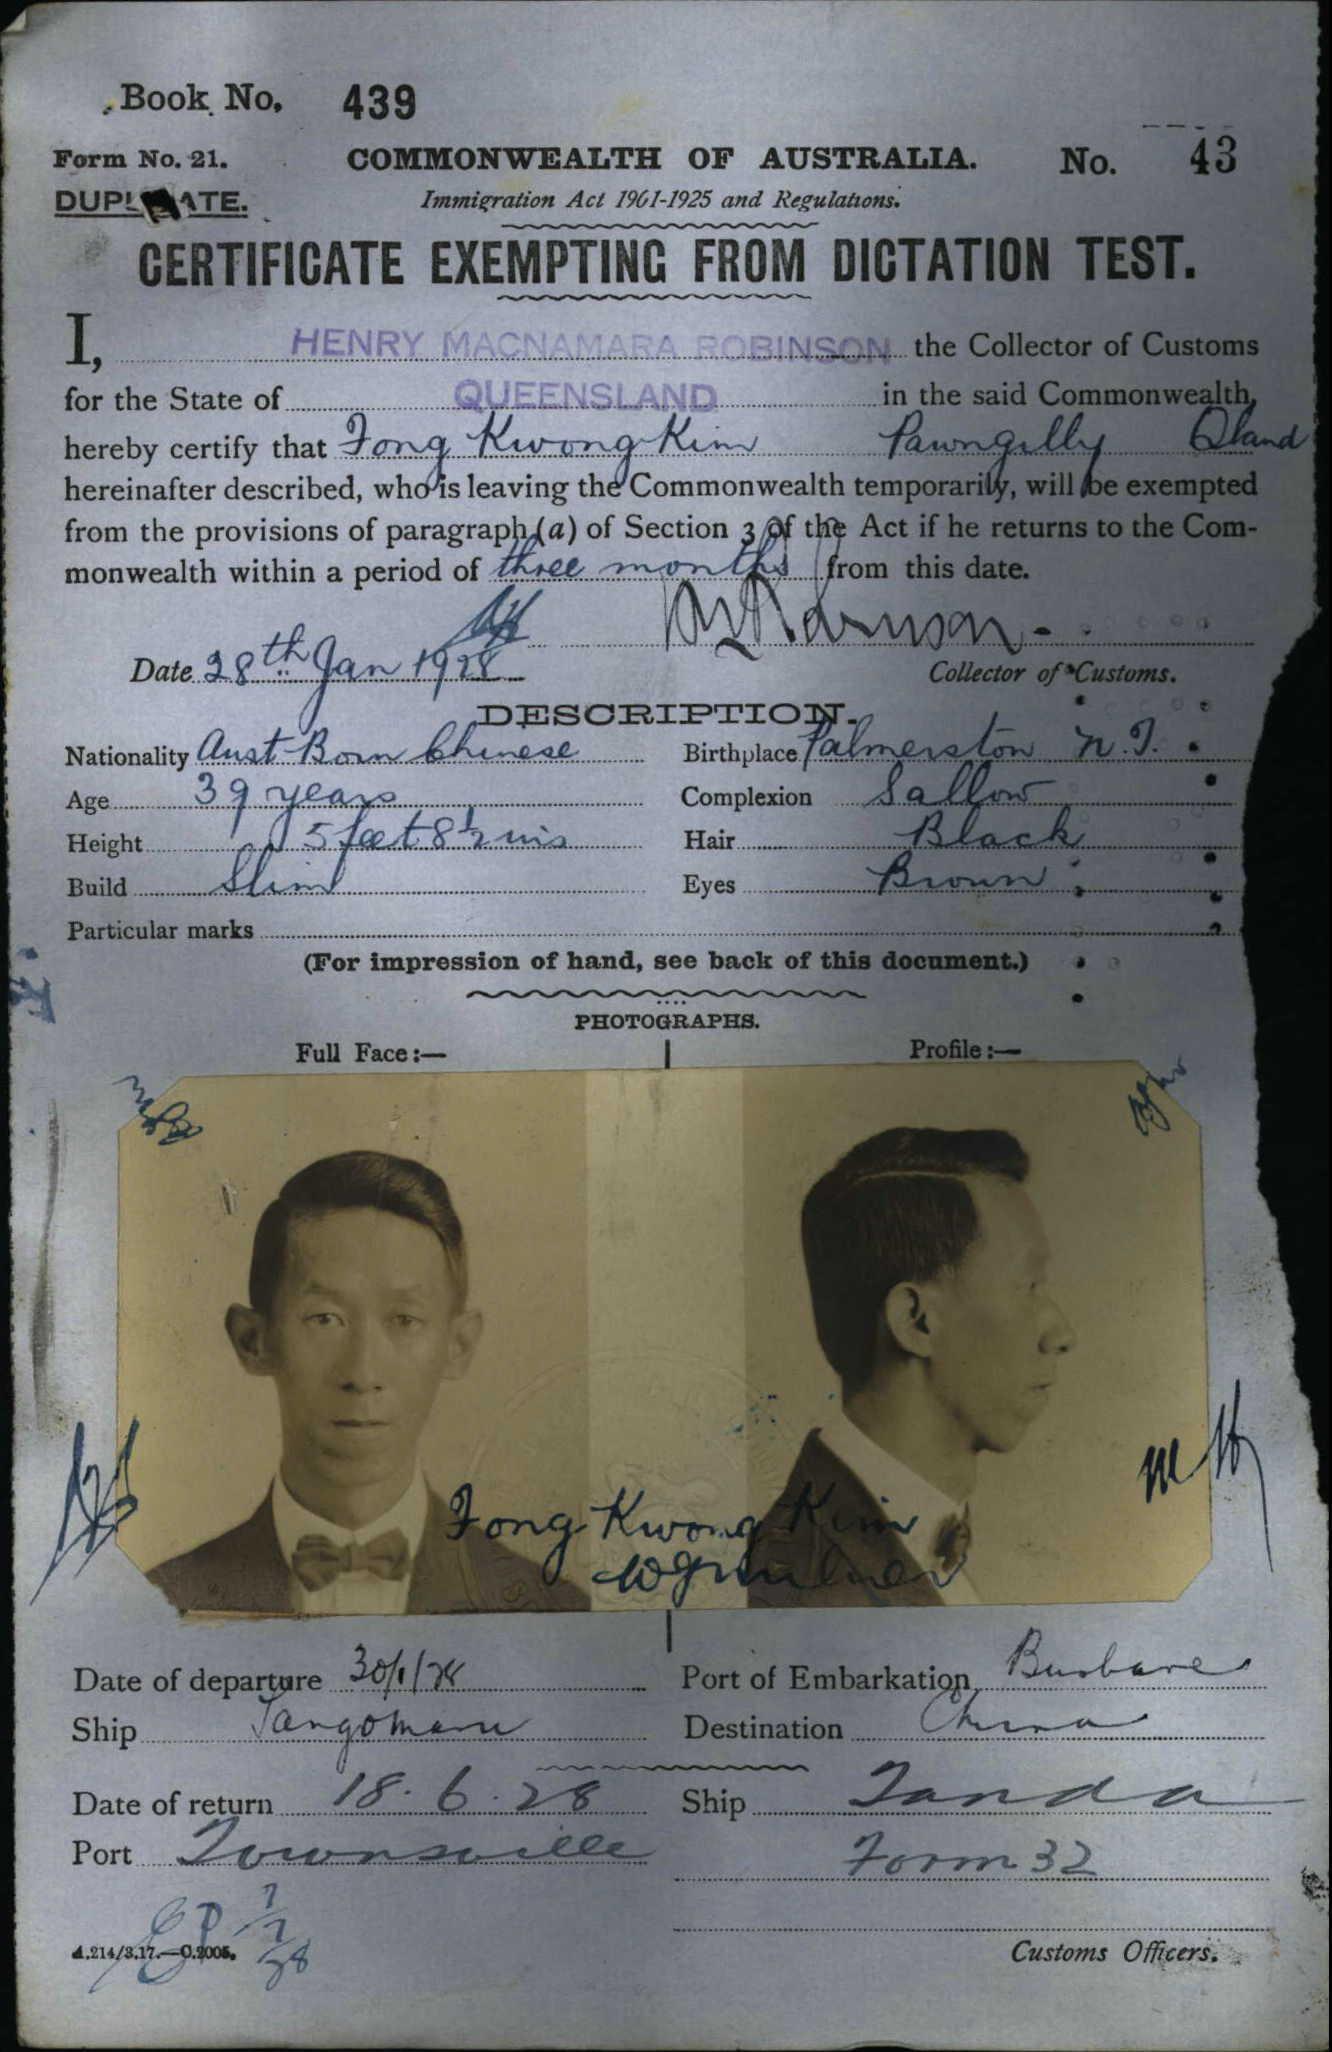 Book No. 439
Form No. 21. COMMONWEALTH OF AUSTRALIA. No. 43
DUPL ATE. Immigration Act 1901-1925 and Regulations.
CERTIFICATE EXEMPTING FROM DICTATION TEST.
I, HENRY MACNAMARA ROBINSON the Collector of Customs
for the State of QUEENSLAND in the said Commonwealth,
hereby certify that Fong Kwong Kim Pawngilly Qland
hereinafter described, who is leaving the Commonwealth temporarily, will be exempted
from the provisions of paragraph (a) of Section 3 of the Act if he returns to the Com-
monwealth within a period of three months from this date.
Date 28th Jan 1928 Collector of Customs.
DESCRIPTION.
Nationality Aust Born Chinese Birthplace Palmerston N.T.
Age 39 years Complexion Sallow
Height 5 feet 8 1/2 ins Hair Black
Build Slim Eyes Brown
Particular marks
(For impression of hand, see back of this document.)
PHOTOGRAPHS.
Full Face:— Profile:—
Fong Kwong Kim
Date of departure 30/1/28 Port of Embarkation Brisbane
Ship Tangomaru Destination China
Date of return 18.6.28 Ship Tanda
Port Townsville Form 32
A.214/3.17.—C.2005. Customs Officers.